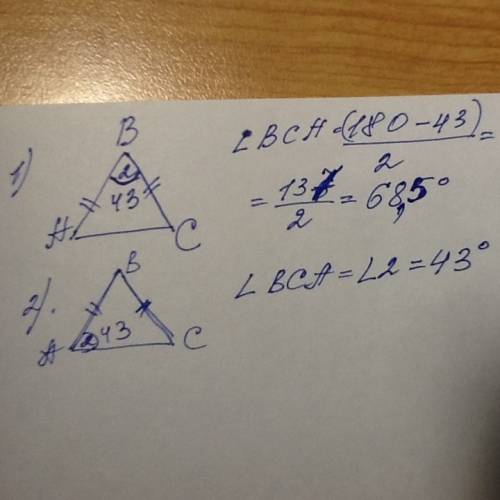 1)
B
2
43
A
C
∠BCA = (180 - 43) / 2 =
= 137 / 2 = 68,5°
2).
B
2
43
A
C
∠BCA = ∠2 = 43°